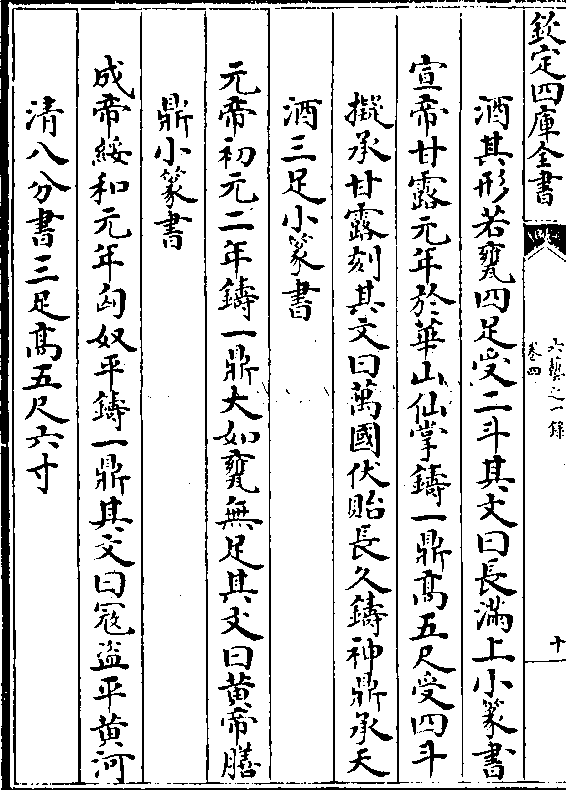 欽定四庫全書
六藝之一錄
卷四
十
酒其形若甕四足受二斗其文曰長滿上小篆書
宣帝甘露元年於華山仙掌鑄一鼎髙五尺受四斗
擬承甘露刻其文曰萬國伏貽長久鑄神鼎承天
酒三足小篆書
元帝初元二年鑄一鼎大如甕無足其文曰黄帝膳
鼎小篆書
成帝綏和元年匈奴平鑄一鼎其文曰冦盗平黄河
清八分書三足髙五尺六寸